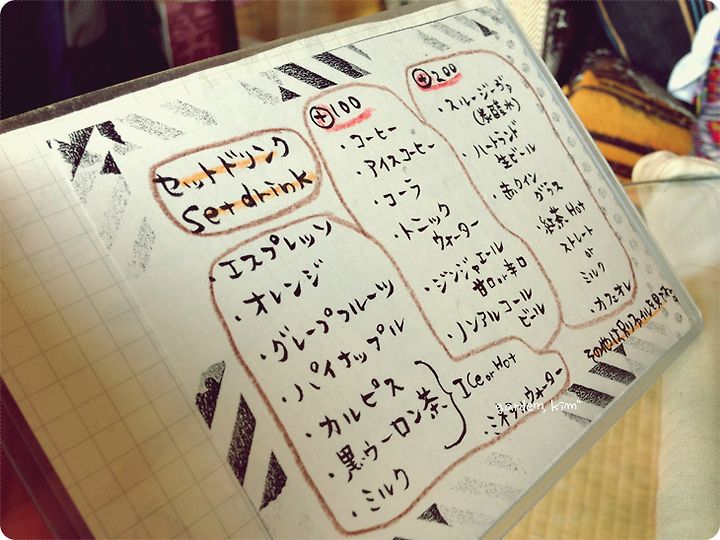 セットドリンク
Set drink
・エスプレッソ
・オレンジ
・グレープフルーツ
・パイナップル
・カルピス
・黒ウーロン茶
Ice or Hot
・ミルク
・ミネラルウォーター
+100
・コーヒー
・アイスコーヒー
・コーラ
・トニック
ウォーター
・ジンジャエール
甘口or辛口
・ノンアルコール
ビール
+200
・スルージーヴァ
(炭酸水)
・ハートランド
生ビール
・赤ワイン
グラス
・紅茶 Hot
ストレート
or
ミルク
・カフェオレ
garden, kim"